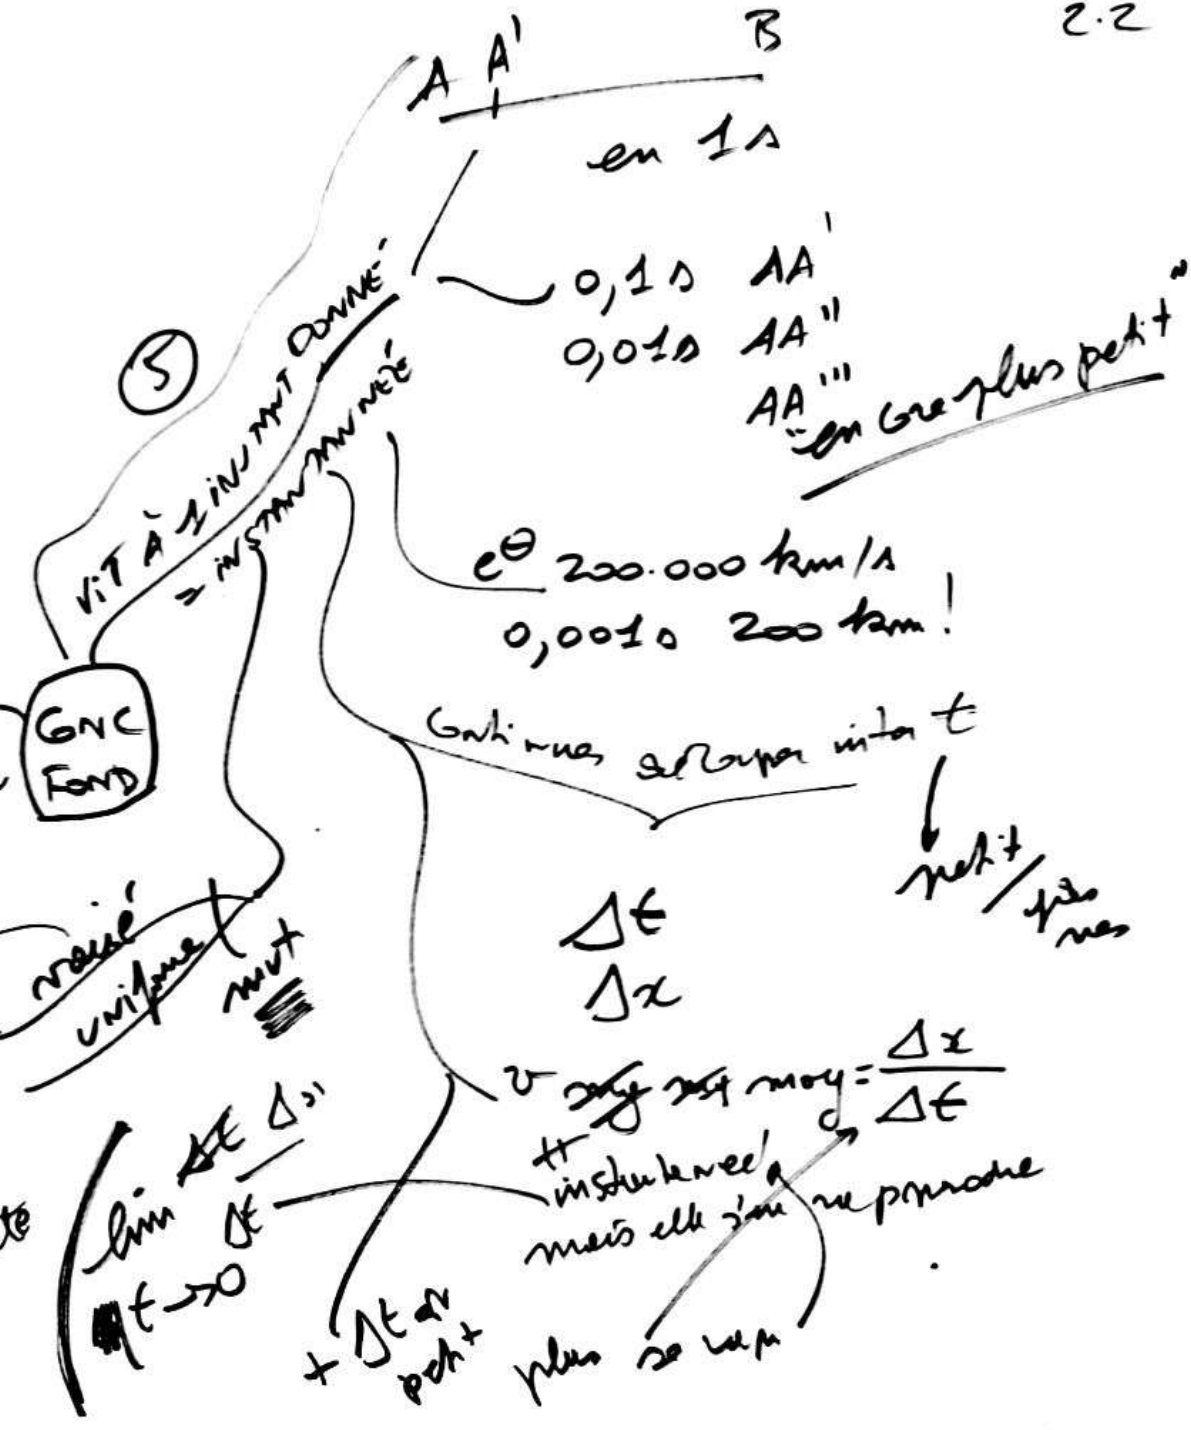 2.2
A A' B
en 1s
0,1s AA'
0,01s AA''
AA'''
"encore plus petit"
5
VIT À 1 INSTANT DONNÉ
= INSTANTANNÉE
e⊖ 200.000 km/s
0,001s 200 km!
CONC
FOND
Continues inter t
petit/
Δt
Δx
varié
uniforme
mvt
v moy = Δx/Δt
≠
instantanée
mais elle s'en rapproche
lim Δx/Δt
t→0
té
+ Δt est
petit
plus se rapp